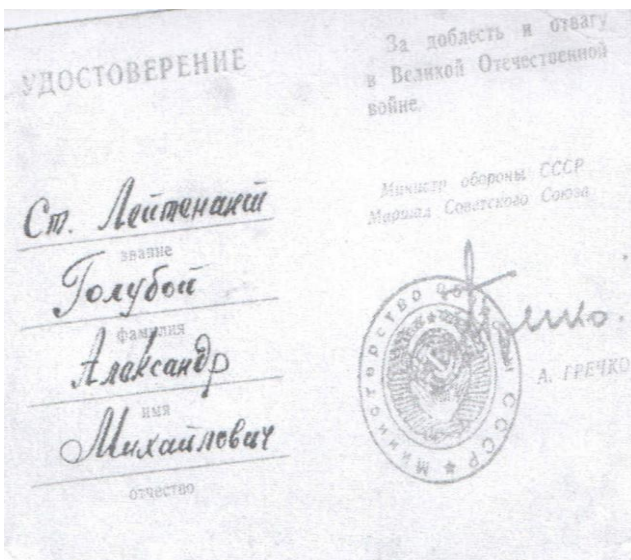 УДОСТОВЕРЕНИЕ
Ст. Лейтенант
звание
Голубой
фамилия
Александр
имя
Михайлович
отчество
За доблесть и отвагу
в Великой Отечественной
войне.
Министр обороны СССР
Маршал Советского Союза
Министерство обороны СССР
А. ГРЕЧКО